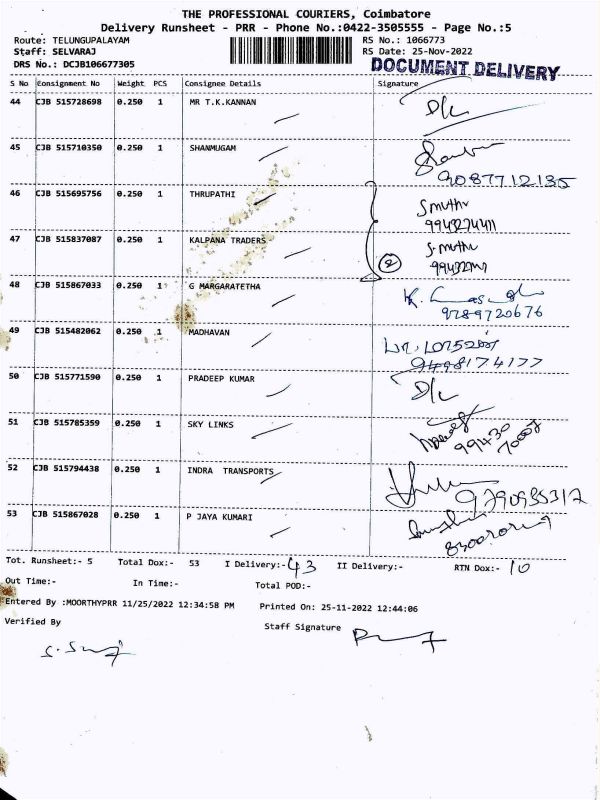 THE PROFESSIONAL COURIERS, Coimbatore
Delivery Runsheet - PRR - Phone No.:0422-3505555 - Page No.:5
Route: TELUNGUPALAYAM RS No.: 1066773
Staff: SELVARAJ RS Date: 25-Nov-2022
DRS No.: DCJB106677305 DOCUMENT DELIVERY
S No Consignment No Weight PCS Consignee Details Signature
44 CJB 515728698 0.250 1 MR T.K.KANNAN D/c
45 CJB 515710350 0.250 1 SHANMUGAM
9087712135
46 CJB 515695756 0.250 1 THRUPATHI S muthu
9943274411
47 CJB 515837087 0.250 1 KALPANA TRADERS S. muthu
2
48 CJB 515867033 0.250 1 G MARGARATETHA
9789720676
49 CJB 515482062 0.250 1 MADHAVAN
9498174177
50 CJB 515771590 0.250 1 PRADEEP KUMAR D/c
51 CJB 515785359 0.250 1 SKY LINKS
99430
52 CJB 515794438 0.250 1 INDRA TRANSPORTS
9790935312
53 CJB 515867028 0.250 1 P JAYA KUMARI
Tot. Runsheet:- 5 Total Dox:- 53 I Delivery:- 43 II Delivery:- RTN Dox:- 10
Out Time:- In Time:- Total POD:-
Entered By :MOORTHYPRR 11/25/2022 12:34:58 PM Printed On: 25-11-2022 12:44:06
Verified By Staff Signature